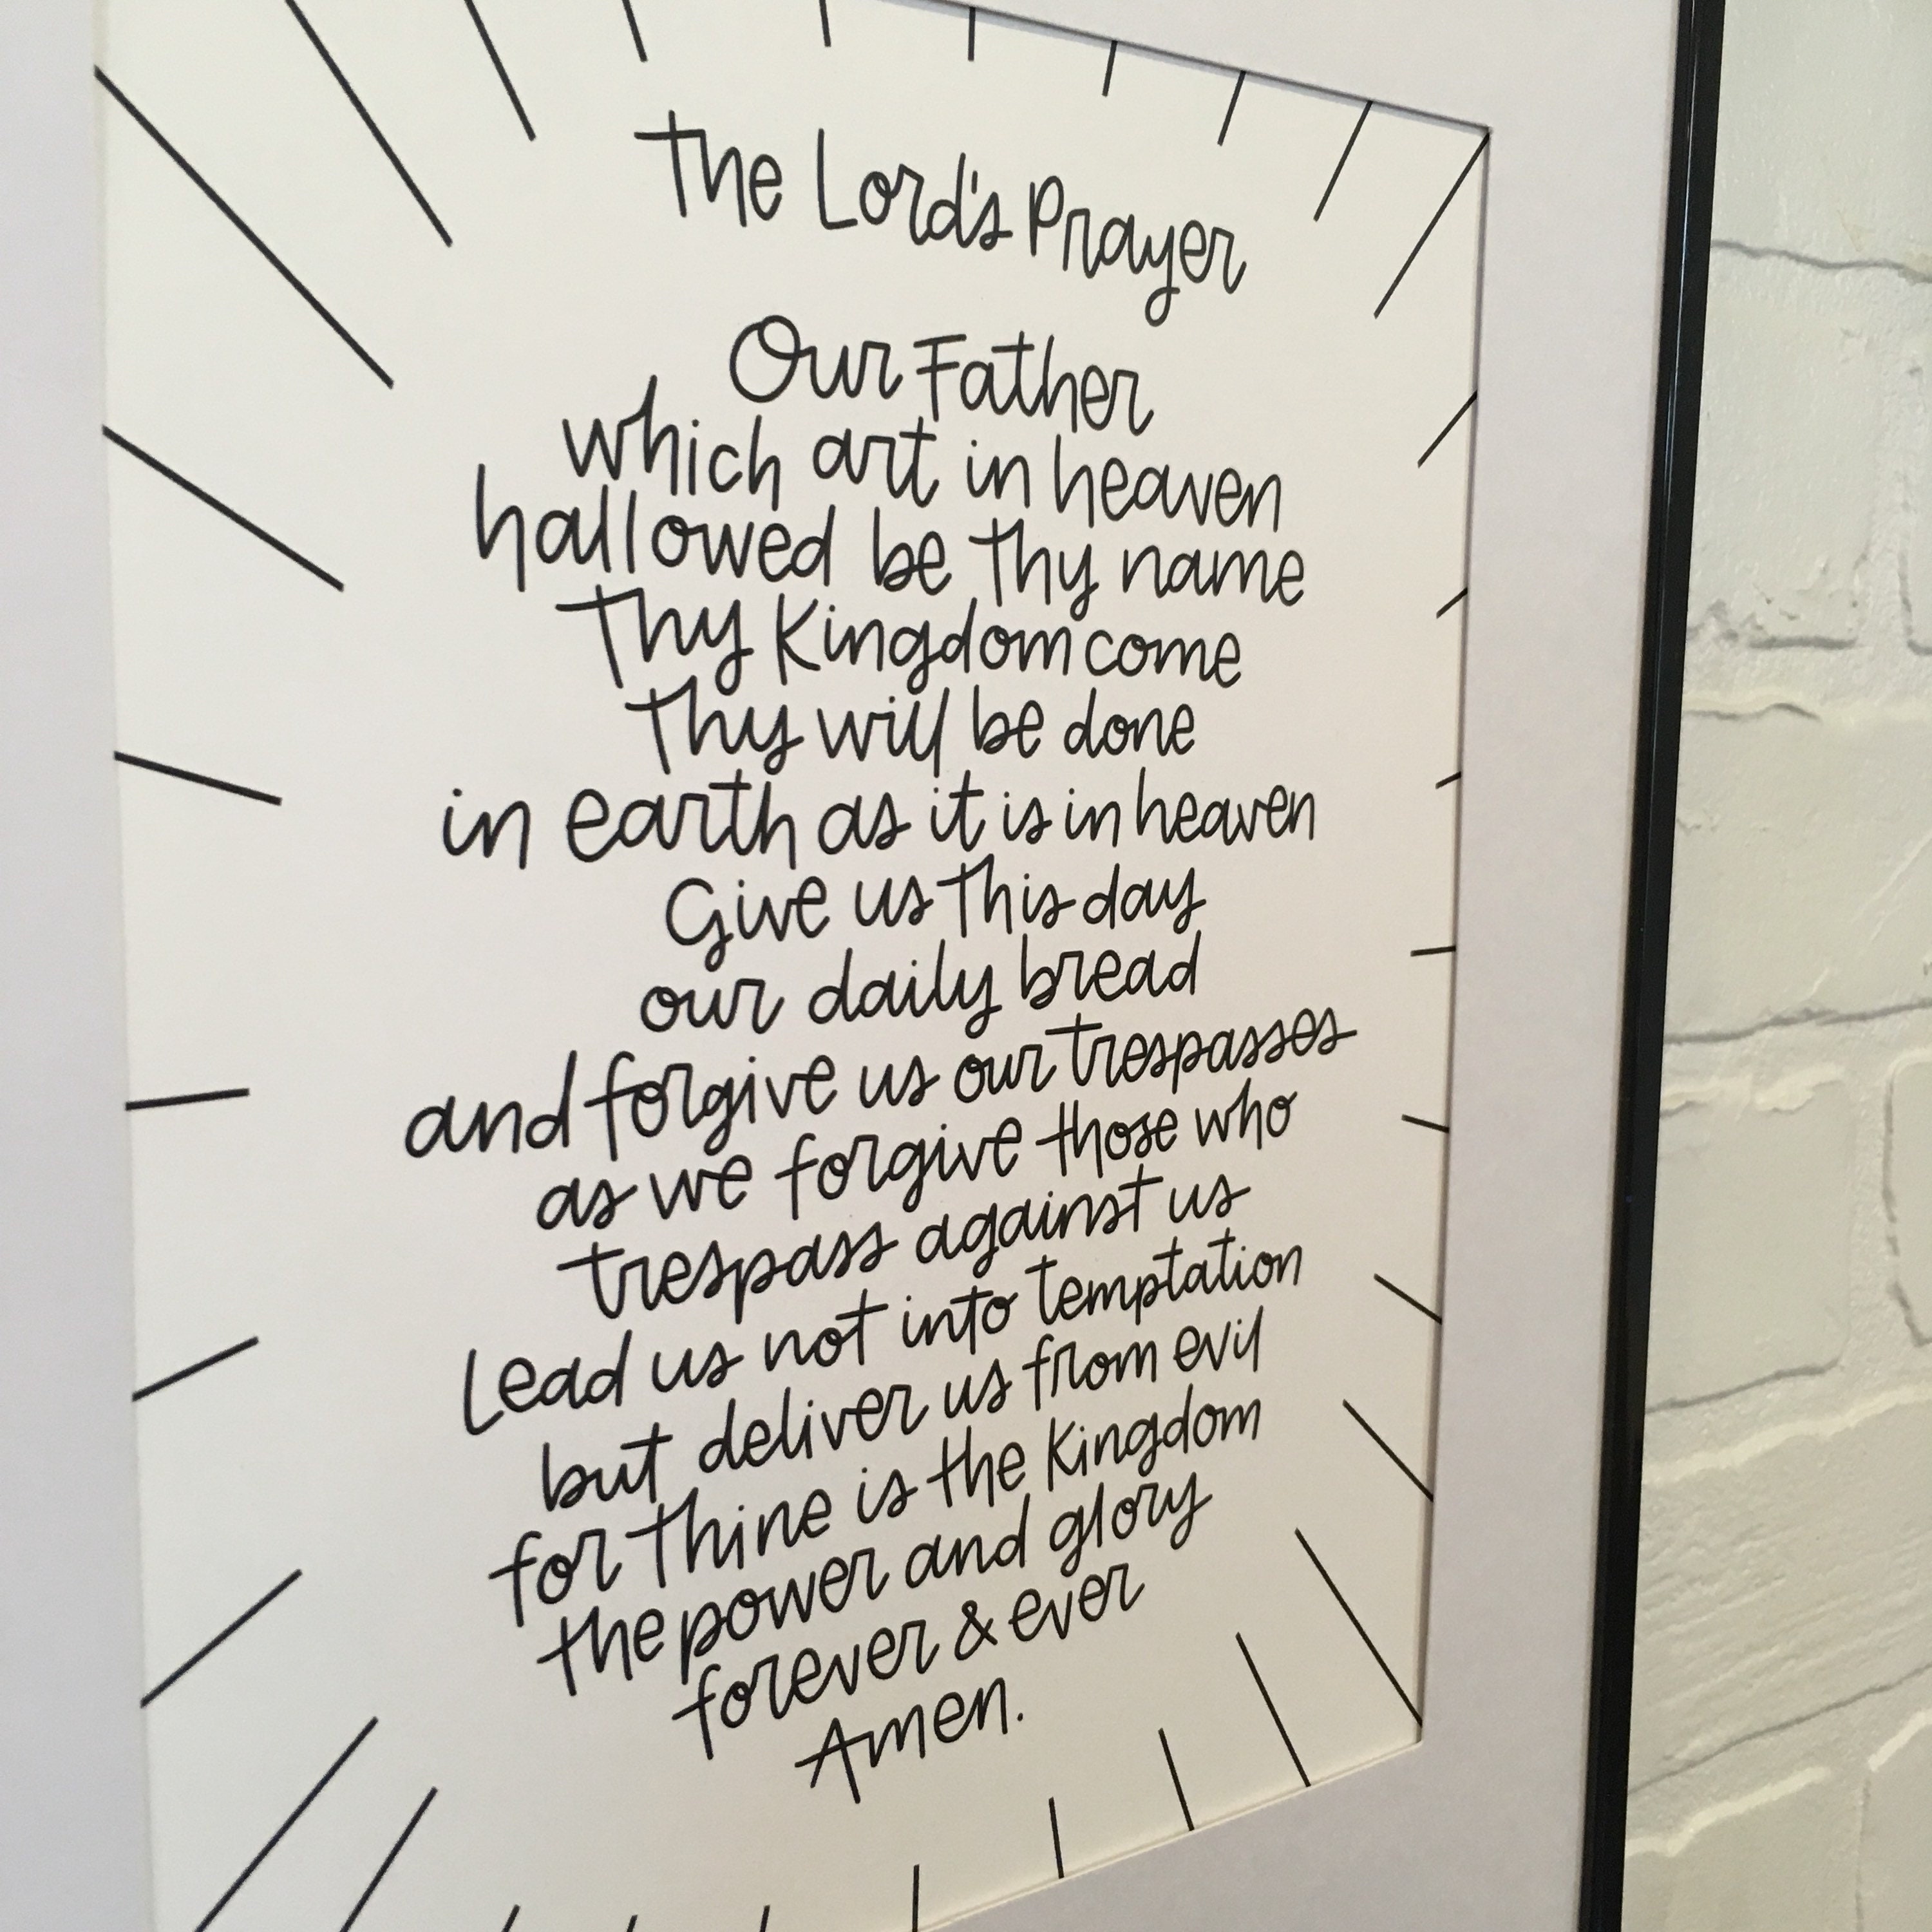 The Lord's Prayer
Our Father
which art in heaven
hallowed be thy name
Thy Kingdom come
Thy will be done
in earth as it is in heaven
Give us this day
our daily bread
and forgive us our trespasses
as we forgive those who
trespass against us
Lead us not into temptation
but deliver us from evil
for thine is the Kingdom
the power and glory
forever & ever
Amen.